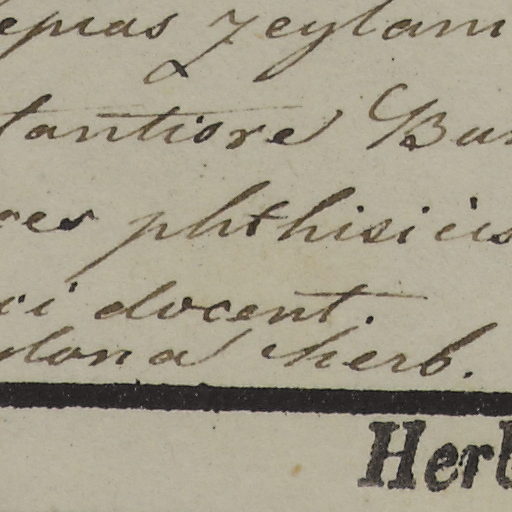 epias Zeylani
tantiore Bur
ces phthisicis
ici docent.
ylona herb.
Herb